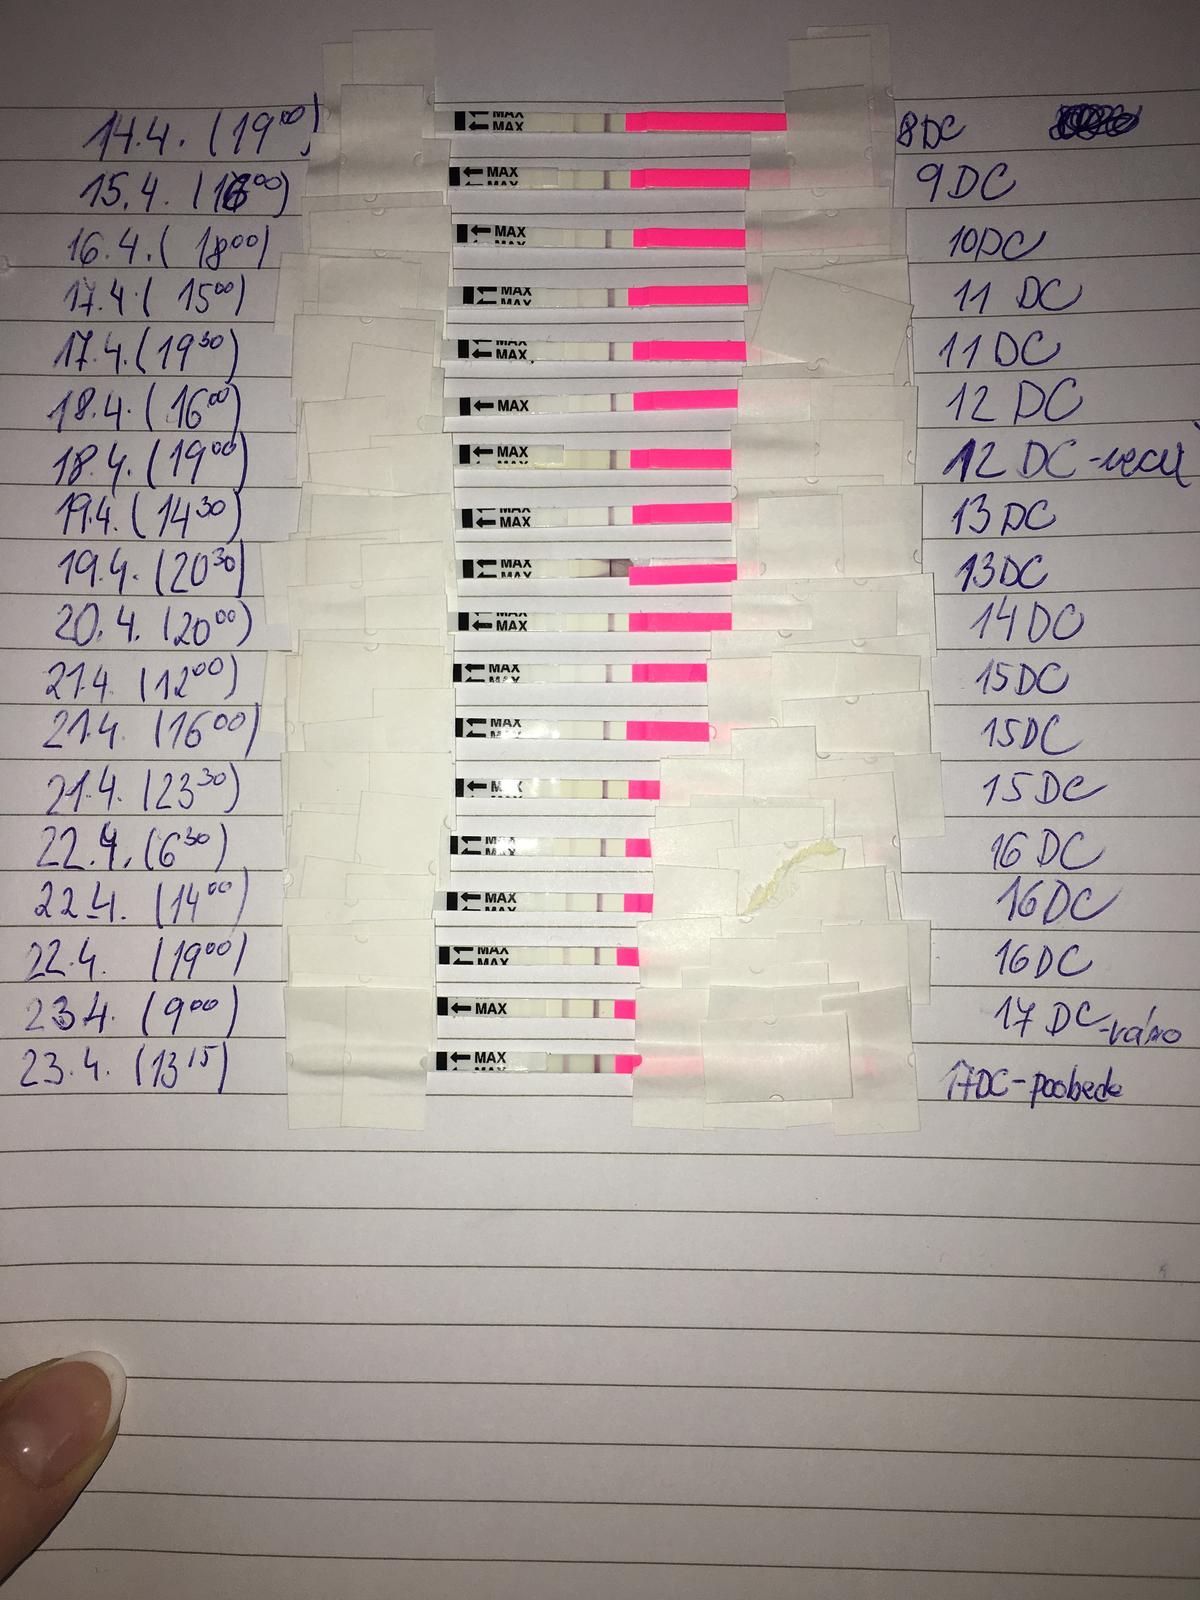 14.4. (19⁰⁰) MAX MAX 8DC
15.4. (16⁰⁰) MAX 9DC
16.4. (18⁰⁰) MAX 10DC
17.4. (15⁰⁰) MAX MAX 11 DC
17.4. (19³⁰) MAX MAX 11 DC
18.4. (16⁰⁰) MAX 12 DC
18.4. (19⁰⁰) MAX MAX 12 DC-večer
19.4. (14³⁰) MAX MAX 13 DC
19.4. (20³⁰) MAX MAX 13DC
20.4. (20⁰⁰) MAX MAX 14DC
21.4. (12⁰⁰) MAX MAX 15DC
21.4. (16⁰⁰) MAX MAX 15DC
21.4. (23³⁰) MAX 15DC
22.4. (6³⁰) MAX MAX 16 DC
22.4. (14⁰⁰) MAX MAX 16DC
22.4. (19⁰⁰) MAX MAX 16DC
23.4. (9⁰⁰) MAX 17 DC-ráno
23.4. (13¹⁵) MAX 17DC-poobede